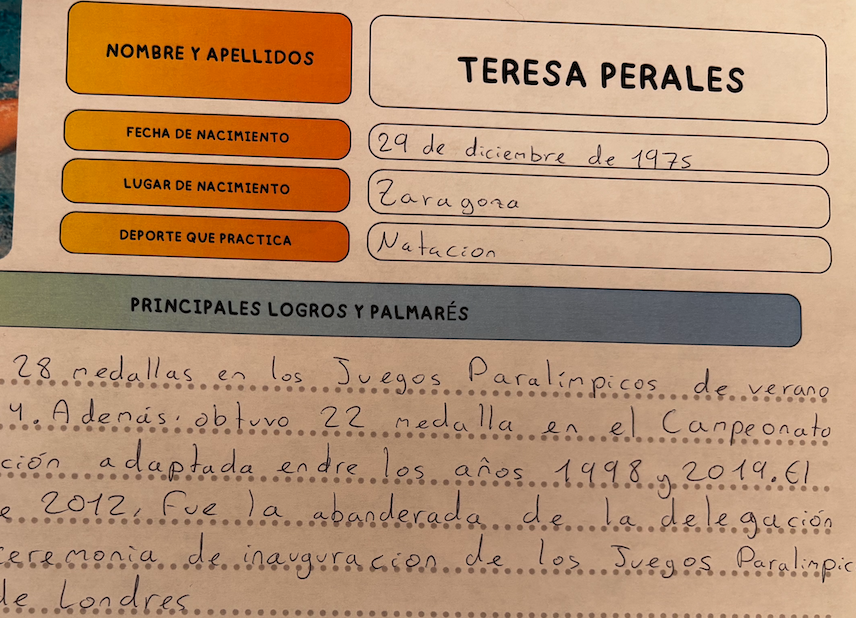 NOMBRE Y APELLIDOS
TERESA PERALES
FECHA DE NACIMIENTO
29 de diciembre de 1975
LUGAR DE NACIMIENTO
Zaragoza
DEPORTE QUE PRACTICA
Natacion
PRINCIPALES LOGROS Y PALMARÉS
28 medallas en los Juegos Paralímpicos de verano
4. Además. obtuvo 22 medalla en el Campeonato
ción adaptada endre los años 1998 y 2019. El
e 2012, Fue la abanderada de la delegación
ceremonia de inauguracion de los Juegos Paralimpic
de Londres